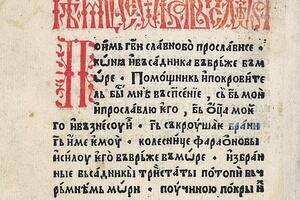 Поимь гв҃и славнобо прослависе •
коны ивьсадника вьврьже вьм
оре • Помощникь ипокровите
ль бы мнѣ вьсп҃сение , сь б҃ь мои
ипрославлю ѥго , б҃ь ѡц҃а моѥ
го ивьзнесоуи • г҃ь скроушаѥ брани
г҃ь име ѥмоу • колеснице фараѡновы
исилоу ѥго вьврьже вьморе • избран
ные вьсадникы тристаты потопи вь
чрьмнѣмь мори • поучиною покры и